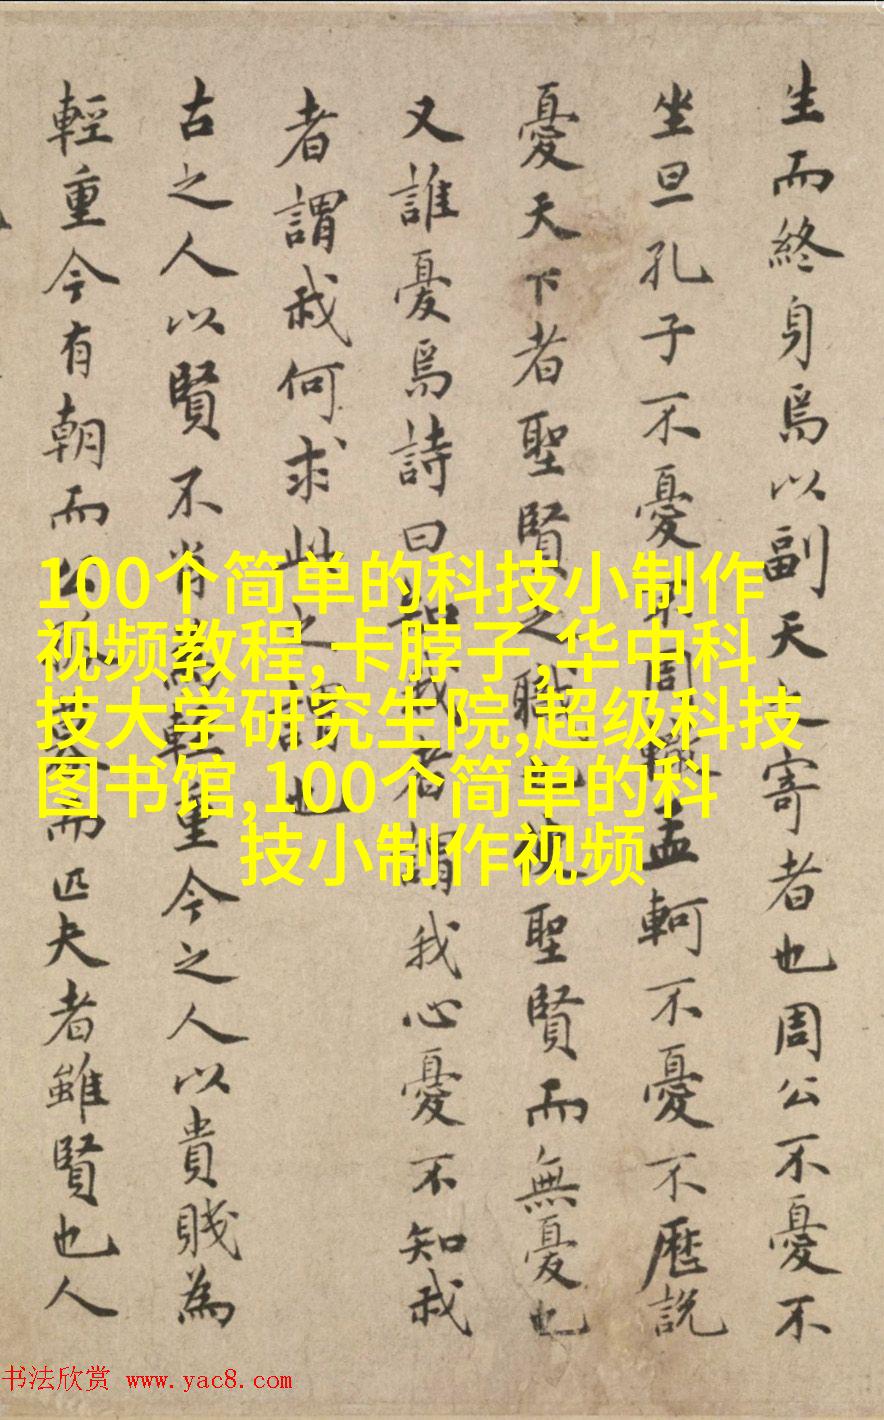 生而終身焉以副天之寄者也周公不憂不
坐旦孔子不憂不周轍孟軻不憂不歷説
憂天下者聖賢之職也使聖賢而無憂也
又誰憂焉詩曰知我者謂我心憂不知我
者謂我何求此之謂也
古之人以賢不肖為輕重今之人以貴賤為
輕重今有朝而公而匹夫者雖賢也人
100个简单的科技小制作
视频教程,卡脖子,华中科
技大学研究生院,超级科技
图书馆,100个简单的科
技小制作视频
书法欣赏 www.yac8.com